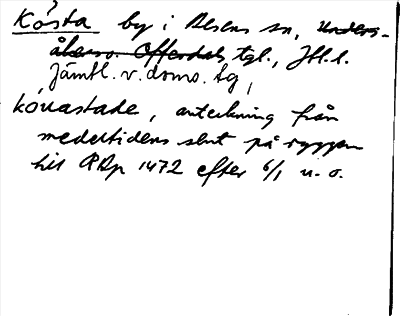 Kösta by i Alsens sn, Unders-
åkers o. Offerdals tgl., Jtl. l.
Jämtl. v. doms. tg,
kouastade, anteckning från
medeltidens slut på ryggen
till RAp 1472 efter 6/1 u. o.